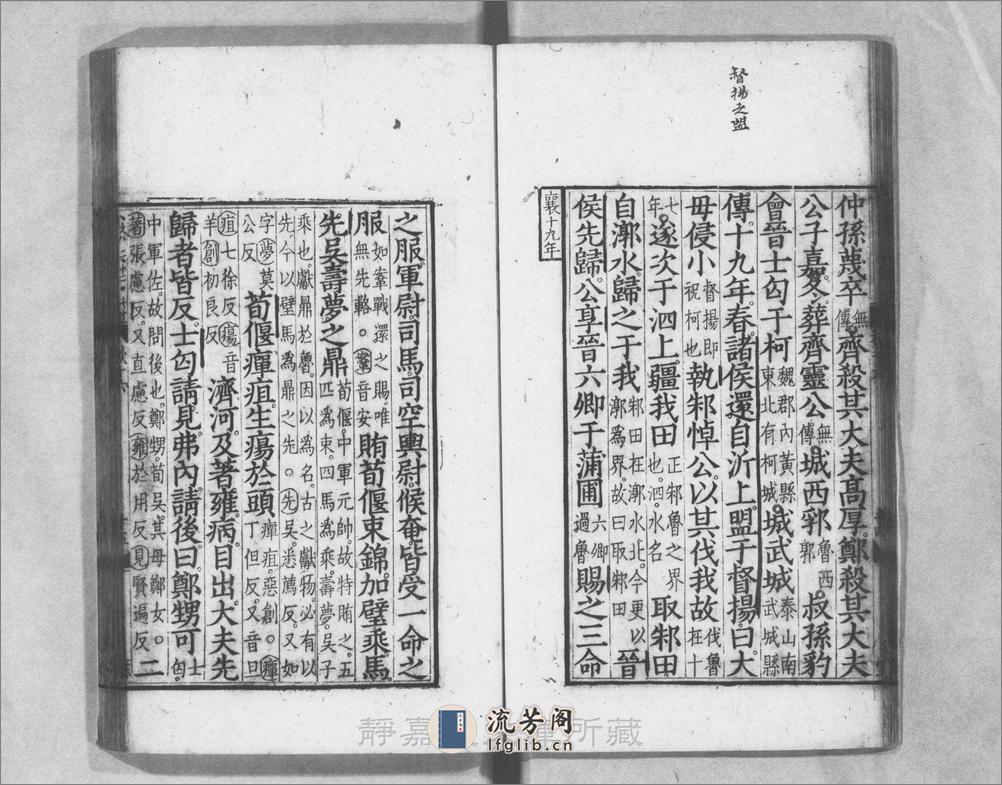 督揚之盟
仲孫蔑卒無傳齊殺其大夫高厚鄭殺其大夫
公子嘉冬葬齊靈公無傳城西郛魯西郭叔孫豹
會晉士匄于柯魏郡內黃縣東北有柯城城武城泰山南武城縣
傳十九年春諸侯還自沂上盟于督揚曰大
毋侵小督揚即祝柯也執邾悼公以其伐我故伐魯在十
七年遂次于泗上疆我田正邾魯之界也泗水名取邾田
自漷水歸之于我邾田在漷水北今更以漷爲界故曰取邾田晉
侯先歸公享晉六卿于蒲圃六卿過魯賜之三命
襄十九年
之服軍尉司馬司空輿尉候奄皆受一命之
服如鞌戰還之賜唯無先輅。鞌音安賄荀偃束錦加璧乘馬
先吳壽夢之鼎荀偃中軍元帥故特賄之五匹爲束四馬爲乘壽夢吳子
乘也獻鼎於魯因以爲名古之獻物必有以先今以璧馬爲鼎之先。先吳悉薦反又如
字夢莫公反荀偃癉疽生瘍於頭癉疽惡創。癉丁但反又音旦
疽七徐反瘍音羊創初良反濟河及著雍病目出大夫先
歸者皆反士匄請見弗內請後曰鄭甥可士匄
中軍佐故問後也鄭甥荀吳其母鄭女。著張慮反又直慮反雍於用反見賢遍反二
靜嘉 所藏
流芳阁
lfglib.cn